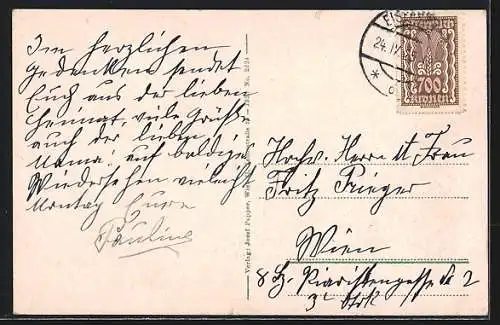 Im herzlichen
Gedenken sendet
Euch aus der lieben
Heimat, viele Grüße
auch der lieben
Mama: auf baldiges
Wiedersehen vieleicht
Montag Eure
Pauline
Verlag: Josef Popper, Wien
No. 2224
24. IV
700
KRONEN
Hochw. Herrn u Frau
Fritz Prieger
Wien
8 Bz. Piaristengasse № 2
3ᵗ Stck